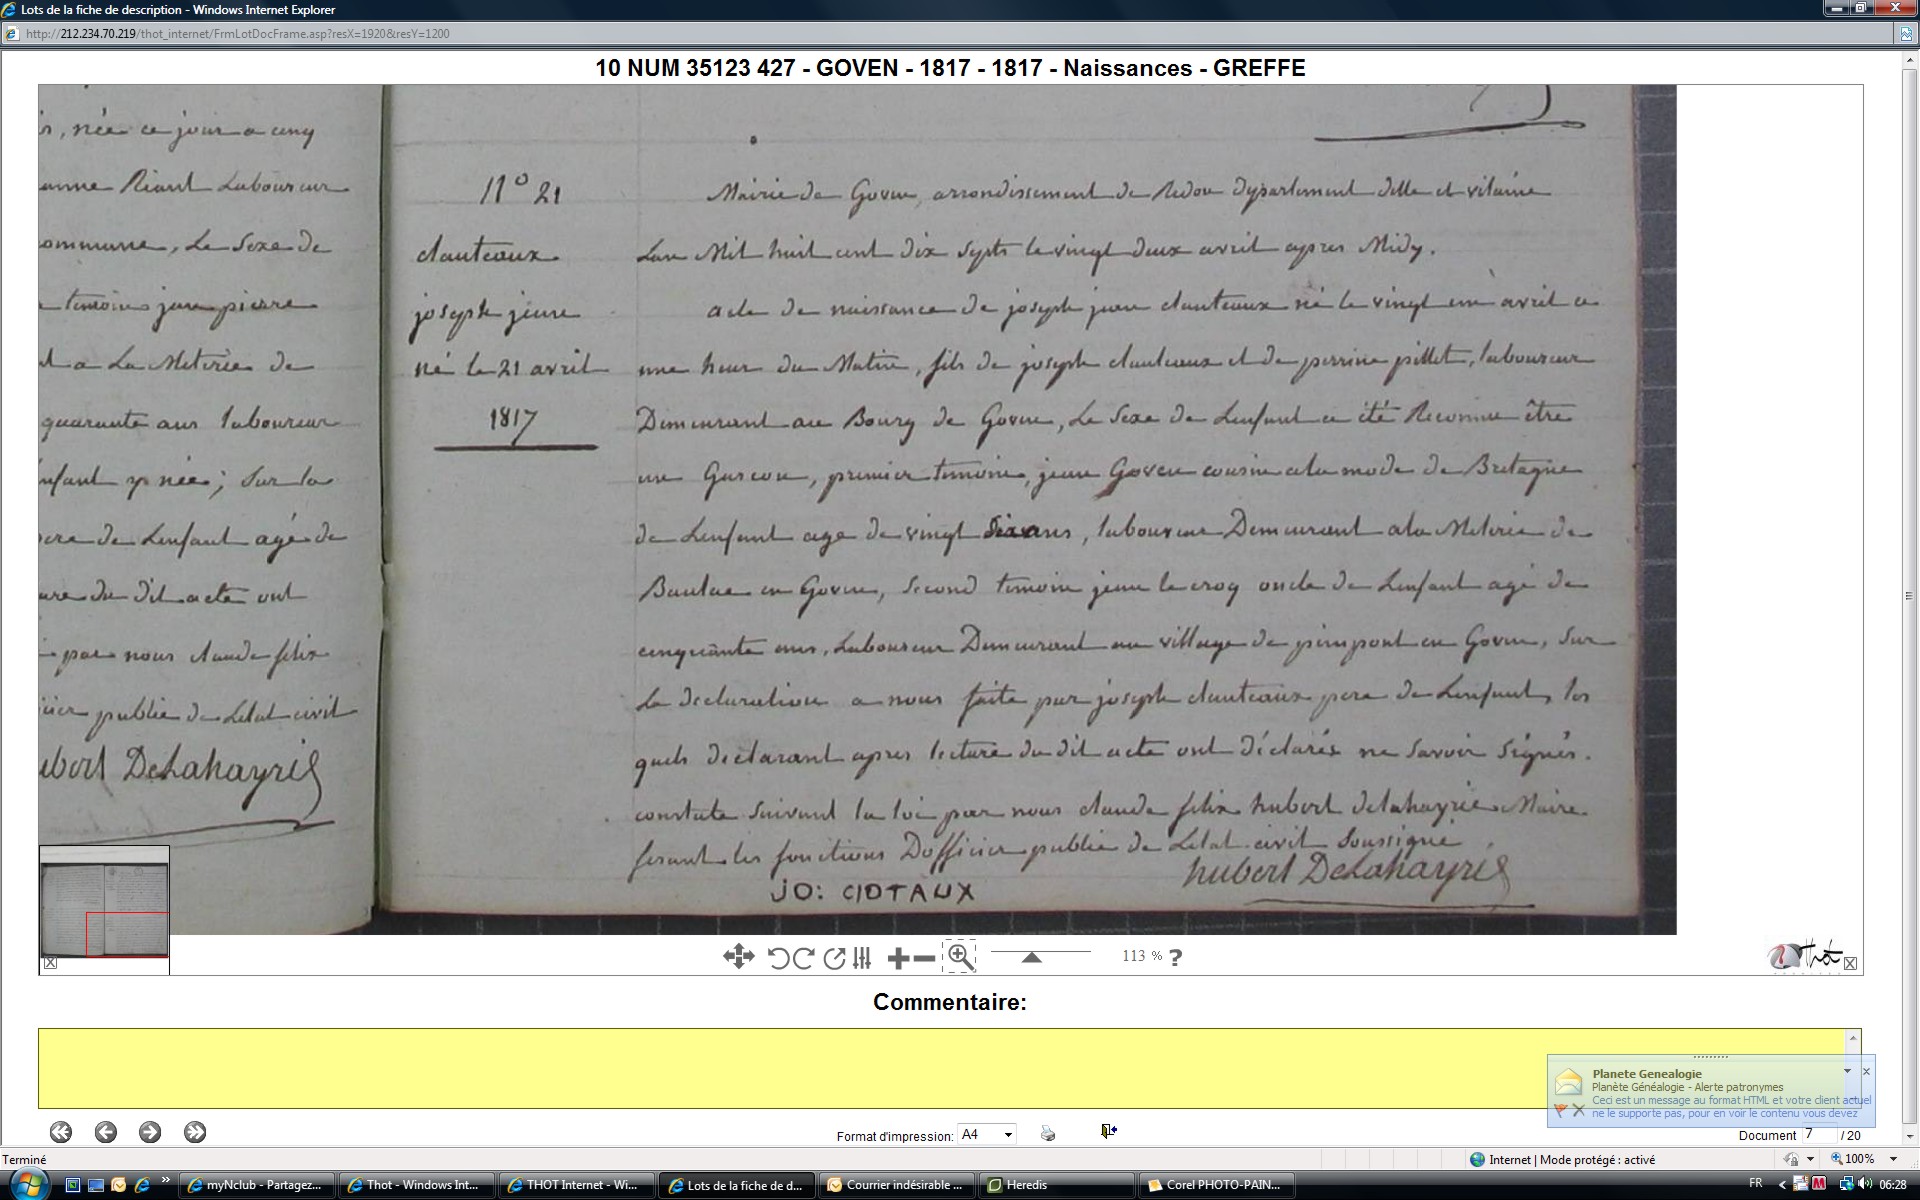 Lots de la fiche de description - Windows Internet Explorer
http://212.234.70.219/thot_internet/FrmLotDocFrame.asp?resX=1920&resY=1200
10 NUM 35123 427 - GOVEN - 1817 - 1817 - Naissances - GREFFE
née ce jour a cinq
Riaut Laboureur
ommune, Le Sexe de
temoins jean pierre
a La Meterie de
quarante ans laboureur
nfant née; Sur la
de Lenfant agé de
du dit acte ont
par nous claude felix
publie de Letat civil
ubert DeLahayrie
N° 21
clauteaux
joseph jean
né le 21 avril
1817
Mairie de Goven, arrondissement de Redon departement dille et vilaine
Lan Mil huit cent dix septs le vingt deux avril apres Midy.
acte de naissance de joseph jean clauteaux né le vingt un avril a
une heur du Matin, fils de joseph clauteaux et de perrine pillet, laboureur
Demeurant au Bourg de Goven, Le Sexe de Lenfant a été Reconnu être
un Garcon, premier temoin, jean Goven cousin ala mode de Bretagne
de Lenfant age de vingt ans, laboureur Demeurant ala Meterie de
en Goven, Second temoin jean le croq oncle de Lenfant agé de
cinquante ans, Laboureur Demeurant au village de pimpont en Goven, Sur
La declaration a nous faite par joseph clauteaux pere de Lenfant, les
quels declarant apres lecture du dit acte ont déclarés ne Savoir Signés.
constate Suivant la loi par nous claude felix hubert delahayrie Maire
fesant les fonctions Dofficier publie de Letat civil Soussigné
hubert DeLahayrie
JO: CIOTAUX
113 % ?
Thot
Commentaire:
Planete Genealogie
Planète Généalogie - Alerte patronymes
Ceci est un message au format HTML et votre client actuel
ne le supporte pas, pour en voir le contenu vous devez
Format d'impression: A4
Document 7 / 20
Terminé
Internet | Mode protégé : activé
100%
myNclub - Partagez...
Thot - Windows Int...
THOT Internet - Wi...
Lots de la fiche de d...
Courrier indésirable ...
Heredis
Corel PHOTO-PAIN...
FR
06:28